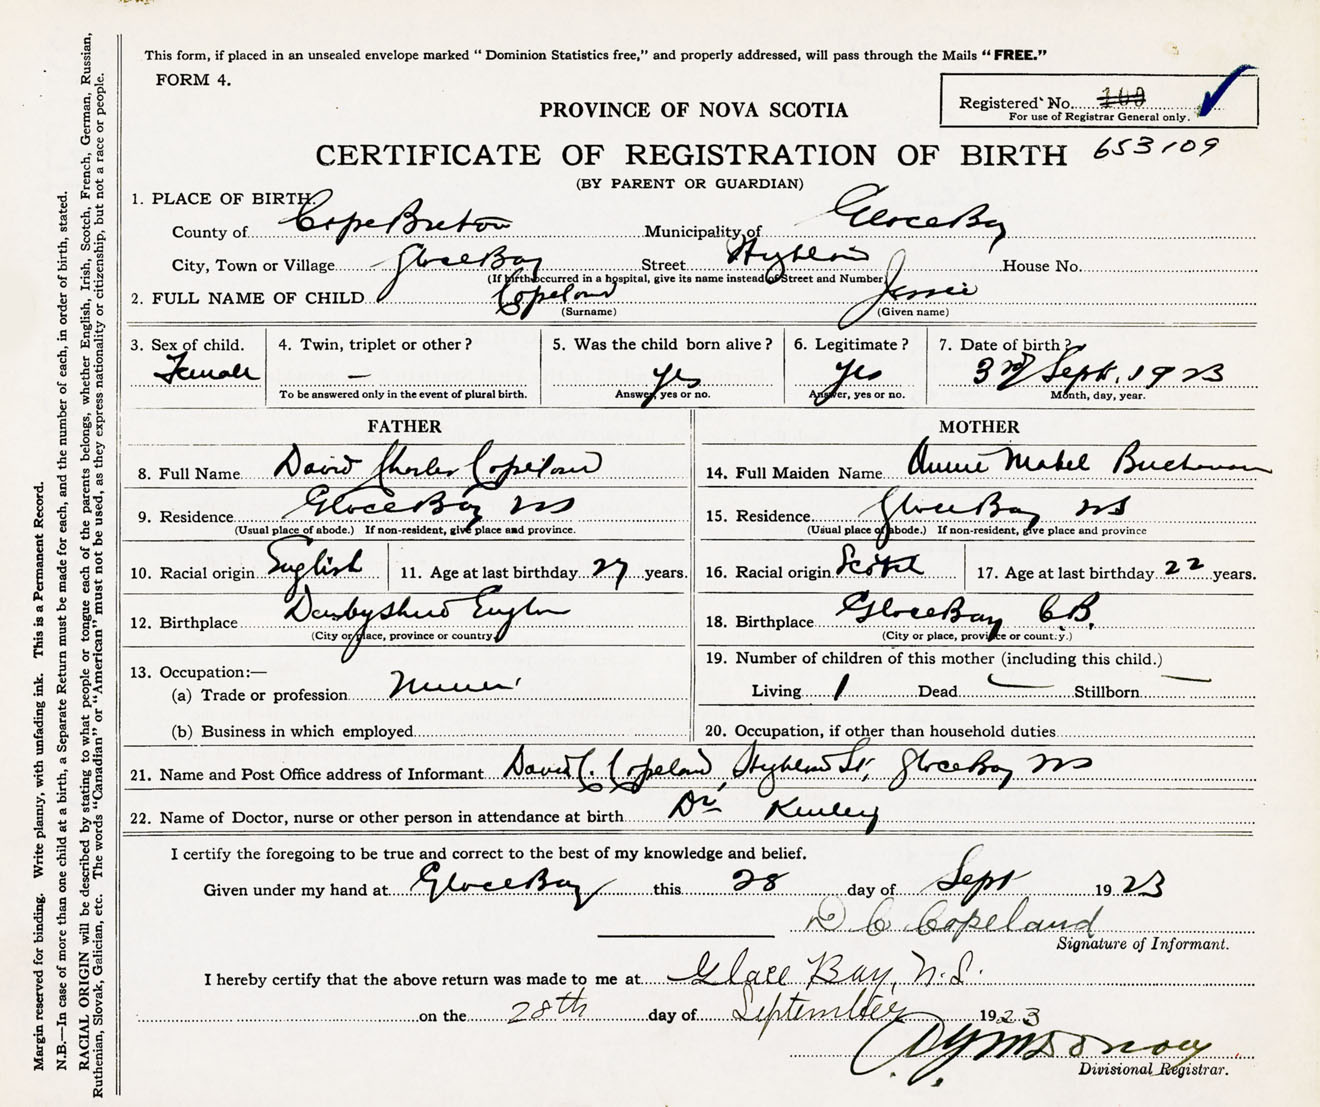 This form, if placed in an unsealed envelope marked “ Dominion Statistics free,” and properly addressed, will pass through the Mails “ FREE.”
FORM 4.
Registered No. 160
For use of Registrar General only.
PROVINCE OF NOVA SCOTIA
CERTIFICATE OF REGISTRATION OF BIRTH 653109
(BY PARENT OR GUARDIAN)
1. PLACE OF BIRTH:
County of Cape Breton Municipality of Glace Bay
City, Town or Village Glace Bay Street House No.
(If birth occurred in a hospital, give its name instead of Street and Number)
2. FULL NAME OF CHILD Copeland Jessie
(Surname) (Given name)
3. Sex of child. 4. Twin, triplet or other ? 5. Was the child born alive ? 6. Legitimate ? 7. Date of birth ?
Female — yes yes 3rd Sept. 1923
To be answered only in the event of plural birth. Answer, yes or no. Answer, yes or no. Month, day, year.
FATHER MOTHER
8. Full Name David Charles Copeland 14. Full Maiden Name Annie Mabel Buchanan
9. Residence Glace Bay NS 15. Residence Glace Bay NS
(Usual place of abode.) If non-resident, give place and province. (Usual place of abode.) If non-resident, give place and province
10. Racial origin English 11. Age at last birthday 27 years. 16. Racial origin Scotch 17. Age at last birthday 22 years.
12. Birthplace Derbyshire England 18. Birthplace Glace Bay C.B.
(City or place, province or country) (City or place, province or country.)
13. Occupation:— 19. Number of children of this mother (including this child.)
(a) Trade or profession Miner Living 1 Dead — Stillborn —
(b) Business in which employed 20. Occupation, if other than household duties
21. Name and Post Office address of Informant David C. Copeland, St, Glace Bay NS
22. Name of Doctor, nurse or other person in attendance at birth Dr
I certify the foregoing to be true and correct to the best of my knowledge and belief.
Given under my hand at Glace Bay this 28 day of Sept 1923
D C Copeland
Signature of Informant.
I hereby certify that the above return was made to me at Glace Bay, N.S.
on the 28th day of September 1923
Divisional Registrar.
Margin reserved for binding. Write plainly, with unfading ink. This is a Permanent Record.
N.B.—In case of more than one child at a birth, a Separate Return must be made for each, and the number of each, in order of birth, stated.
RACIAL ORIGIN will be described by stating to what people or tongue each of the parents belongs, whether English, Irish, Scotch, French, German, Russian,
Ruthenian, Slovak, Galician, etc. The words “Canadian” or “American” must not be used, as they express nationality or citizenship, but not a race or people.